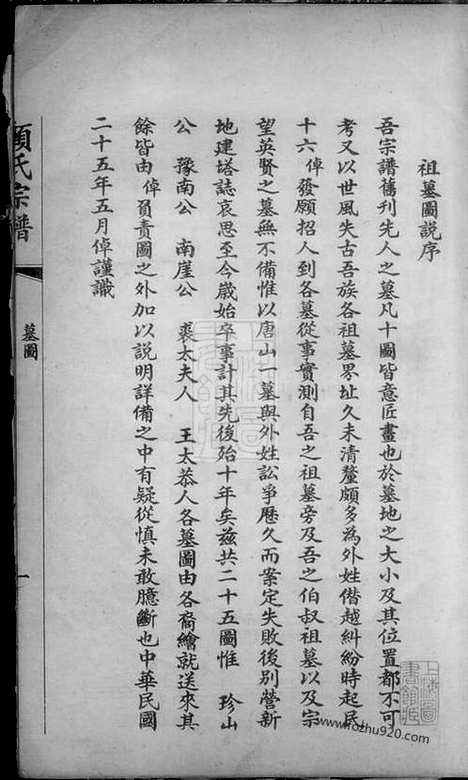 祖墓圖說序
吾宗譜舊刊先人之墓凡十圖皆意匠畫也於墓地之大小及其位置都不可
考又以世風失古吾族各祖墓界址久未清釐頗多為外姓僭越糾紛時起民
十六倬發願招人到各墓從事實測自吾之祖墓旁及吾之伯叔祖墓以及宗
望英賢之墓無不備惟以唐山一墓與外姓訟爭歷久而案定失敗後別營新
地建塔誌哀思至今歲始卒事計其先後殆十年矣茲共二十五圖惟 珍山
公 豫南公 南崖公 裘太夫人 王太恭人各墓圖由各裔繪就送來其
餘皆由倬負責圖之外加以說明詳備之中有疑從慎未敢臆斷也中華民國
二十五年五月倬謹識
項氏宗譜
墓圖
一
上海圖書館藏
www.fozhu920.com